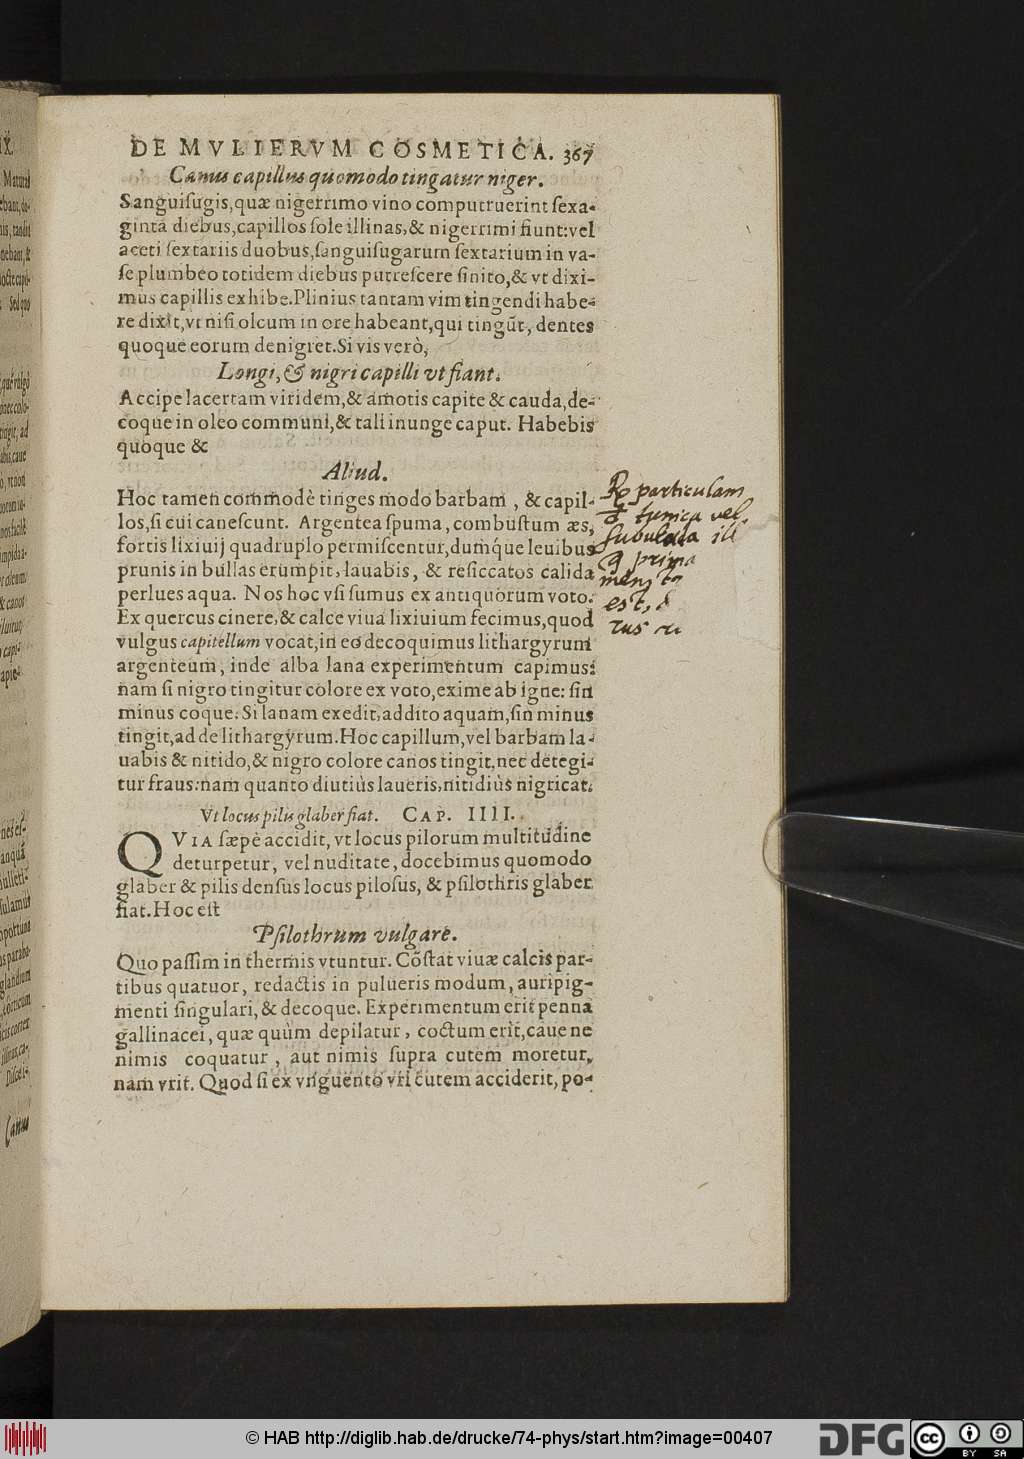 DE MVLIERVM COSMETICA. 367
Canus capillus quomodo tingatur niger.
Sanguiſugis,quæ nigerrimo vino computruerint ſexa-
ginta diebus,capillos ſole illinas,& nigerrimi fiunt:vel
aceti ſextariis duobus,ſanguiſugarum ſextarium in va-
ſe plumbeo totidem diebus putreſcere ſinito,& vt dixi-
mus capillis exhibe.Plinius tantam vim tingendi habe-
re dixit,vt niſi oleum in ore habeant,qui tingũt, dentes
quoque eorum denigret.Si vis verò,
Longi,& nigri capilli vt fiant.
Accipe lacertam viridem,& amotis capite & cauda,de-
coque in oleo communi,& tali inunge caput. Habebis
quoque &
Aliud.
Hoc tamen commodè tinges modo barbam , & capil-
los,ſi cui caneſcunt. Argentea ſpuma, combuſtum æs,
fortis lixiuij quadruplo permiſcentur,dumq́ue leuibus
prunis in bullas erumpit,lauabis, & reſiccatos calida
perlues aqua. Nos hoc vſi ſumus ex antiquorum voto.
Ex quercus cinere,& calce viua lixiuium fecimus,quod
vulgus capitellum vocat,in eo decoquimus lithargyrum
argenteum, inde alba lana experimentum capimus:
nam ſi nigro tingitur colore ex voto,exime ab igne: ſin
minus coque. Si lanam exedit,addito aquam,ſin minus
tingit,adde lithargyrum.Hoc capillum,vel barbam la-
uabis & nitido,& nigro colore canos tingit,nec detegi-
tur fraus:nam quanto diutiùs laueris,nitidiùs nigricat.
Vt locus pilis glaber fiat. CAP. IIII.
QVIA ſæpè accidit, vt locus pilorum multitudine
deturpetur, vel nuditate, docebimus quomodo
glaber & pilis denſus locus piloſus, & pſilothris glaber
fiat.Hoc eſt
Pſilothrum vulgare.
Quo paſſim in thermis vtuntur. Cõſtat viuæ calcis par-
tibus quatuor, redactis in pulueris modum, auripig-
menti ſingulari,& decoque. Experimentum erit penna
gallinacei, quæ quùm depilatur, coctum erit,caue ne
nimis coquatur , aut nimis ſupra cutem moretur,
nam vrit. Quod ſi ex vnguento vri cutem acciderit, po-
particulam
tunica vel
subula ill
prima
est,
Canus
© HAB http://diglib.hab.de/drucke/74-phys/start.htm?image=00407
DFG
cc BY SA